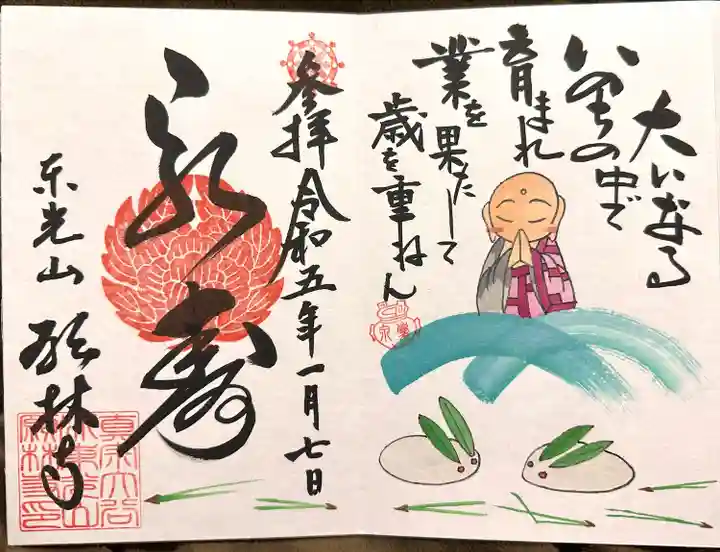 大いなる
いのちの中で
育まれ
業を果たして
歳を重ねん
参拝 令和五年一月七日
永寿
东光山 願林寺